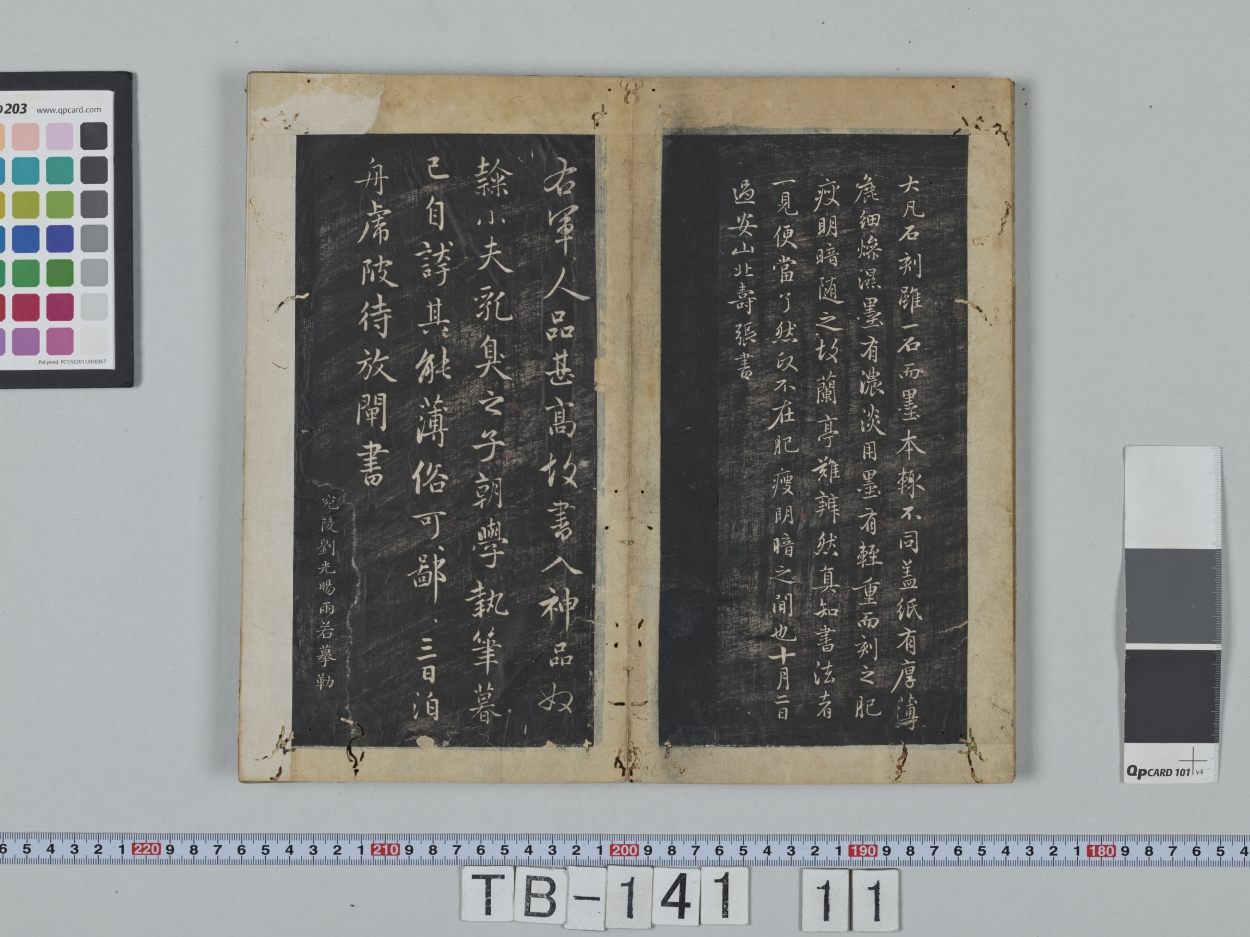 大凡石刻雖一石而墨本輙不同盖紙有厚薄
麁細燥濕墨有濃淡用墨有輕重而刻之肥
瘦明暗随之故蘭亭難辨然真知書法者
一見便當了然政不在肥瘦明暗之間也十月二日
過安山北壽張書
右軍人品甚高故書入神品奴
隸小夫乳臭之子朝學執筆暮
已自誇其能薄俗可鄙、三日泊
舟虎陂待放閘書
宛陵劉光暘雨若摹勒
203 www.qpcard.com
Pat.pend. PCT/SE2011/050367
QPCARD 101 v4
6 5 4 3 2 1 220 9 8 7 6 5 4 3 2 1 210 9 8 7 6 5 4 3 2 1 200 9 8 7 6 5 4 3 2 1 190 9 8 7 6 5 4 3 2 1 180 9 8 7 6 5 4
TB-141 11